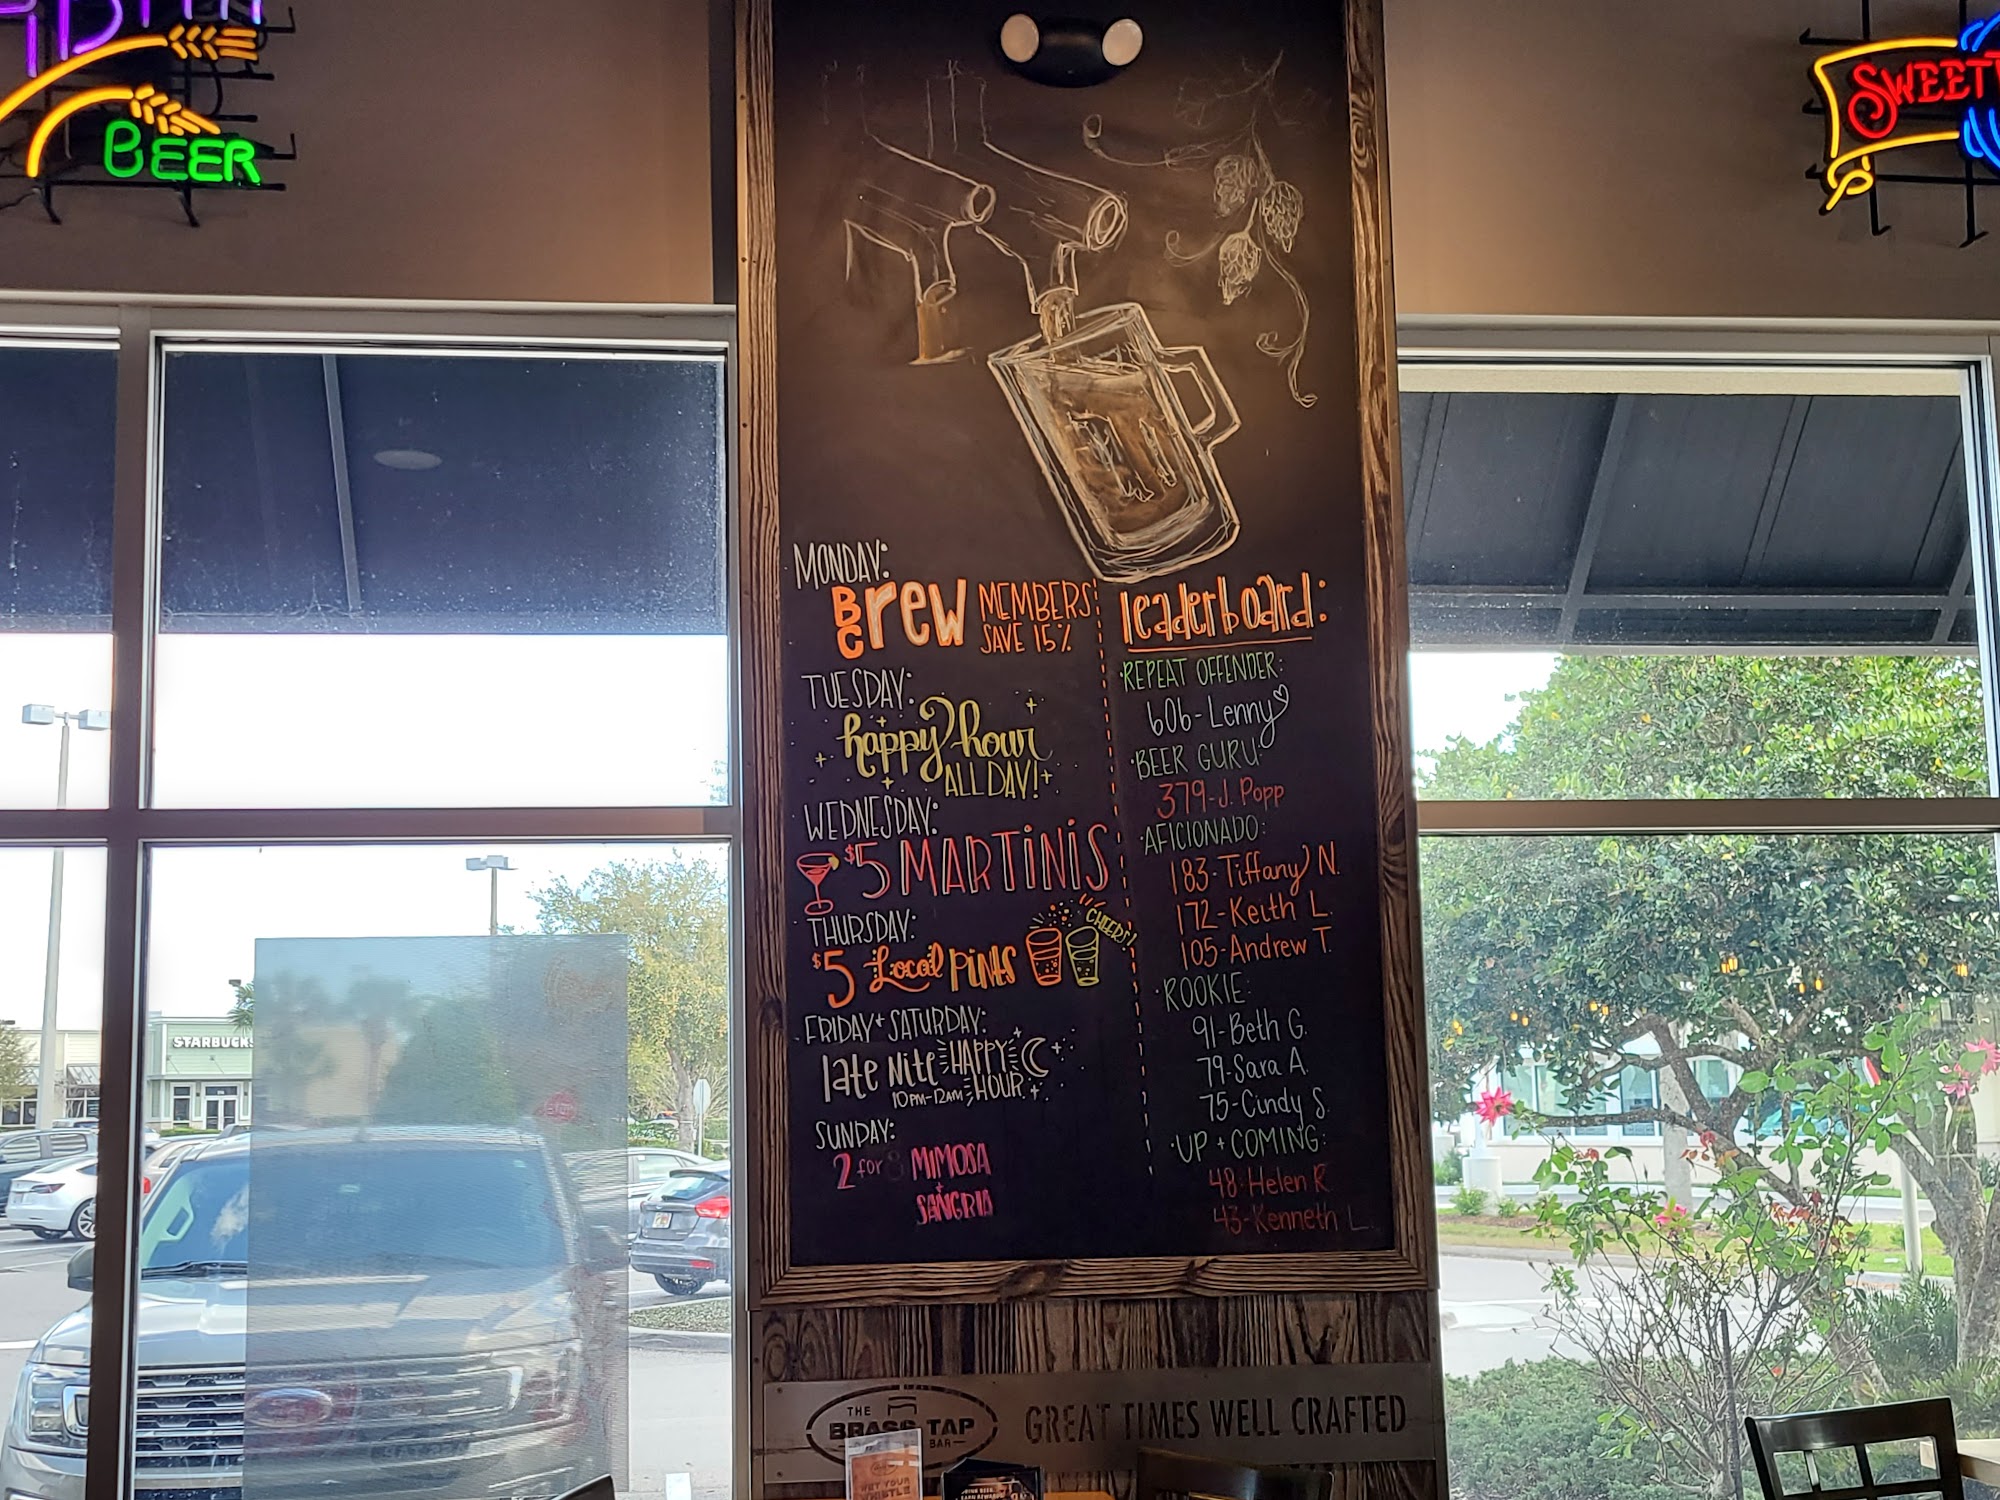 BEER
SWEET
MONDAY:
BC rew MEMBERS
SAVE 15%
TUESDAY:
happy hour
ALL DAY!
WEDNESDAY:
$5 MARTINIS
THURSDAY:
$5 Local PINTS
CHEERS!
FRIDAY + SATURDAY:
late Nite HAPPY
HOUR
10PM-12AM
SUNDAY:
2 for 8 MIMOSA
+
SANGRIA
leaderboard:
·REPEAT OFFENDER:
606-Lenny
·BEER GURU:
379-J. Popp
·AFICIONADO:
183-Tiffany N.
172-Keith L.
105-Andrew T.
·ROOKIE:
91-Beth G.
79-Sara A.
75-Cindy S.
·UP + COMING:
48-Helen R.
43-Kenneth L.
STARBUCKS
THE
BRASS TAP
BAR
GREAT TIMES WELL CRAFTED